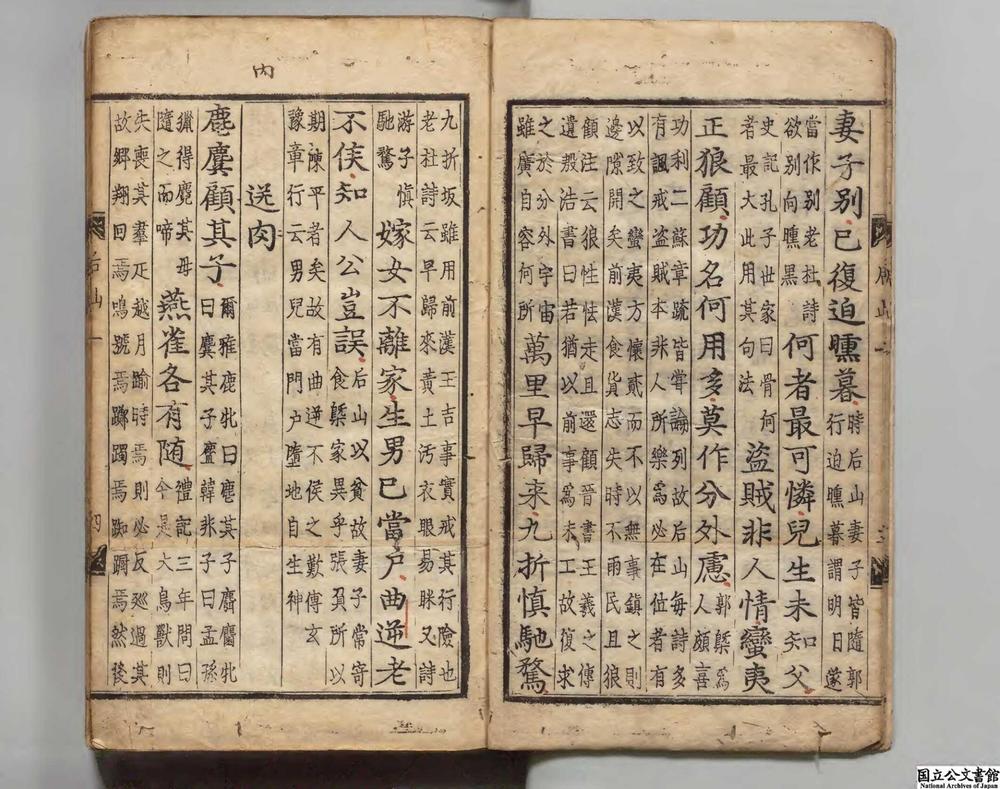 妻子別已復迫曛暮時后山妻子皆隨郭
行迫曛暮謂明日遂
當作別老杜詩
欲別向曛黑何者最可憐兒生未知父
史記孔子世家曰骨何
者最大此用其句法盜賊非人情蠻夷
正狼顧功名何用多莫作分外慮郭槩為
人頗喜
功利二蘇章疏皆掌論列故后山每詩多
有諷戒盜賊本非人所樂為必在位者有
以致之蠻夷方懷貳而不以無事鎮之則
邊隙開矣前漢食貨志失時不雨民且狼
顧注云狼性怯走且還顧晉書王羲之傳
遺殷浩書曰若猶以前事為未工故復求
之於分外宇宙
雖廣自容何所萬里早歸来九折慎馳騖
内
九折坂雖用前漢王吉事實戒其行險也
老杜詩云早歸來黄土汚衣眼易眯又詩
游子慎
馳騖嫁女不離家生男已當户曲逆老
不侯知人公豈誤后山以貧故妻子常寄
食槩家異乎張負所以
期陳平者矣故有曲逆不侯之歎傅玄
豫章行云男兒當門户墮地自生神
送内
麀麌顧其子爾雅鹿牝曰麀其子麛麕牝
曰麌其子麆韓非子曰孟孫
獵得麑其母
隨之而啼燕雀各有随禮記三年問曰
今是大鳥獸則
失喪其羣匹越月踰時焉則必反廵過其
故鄉翔回焉鳴號焉蹢躅焉踟蹰焉然後
后山一
四
国立公文書館
National Archives of Japan